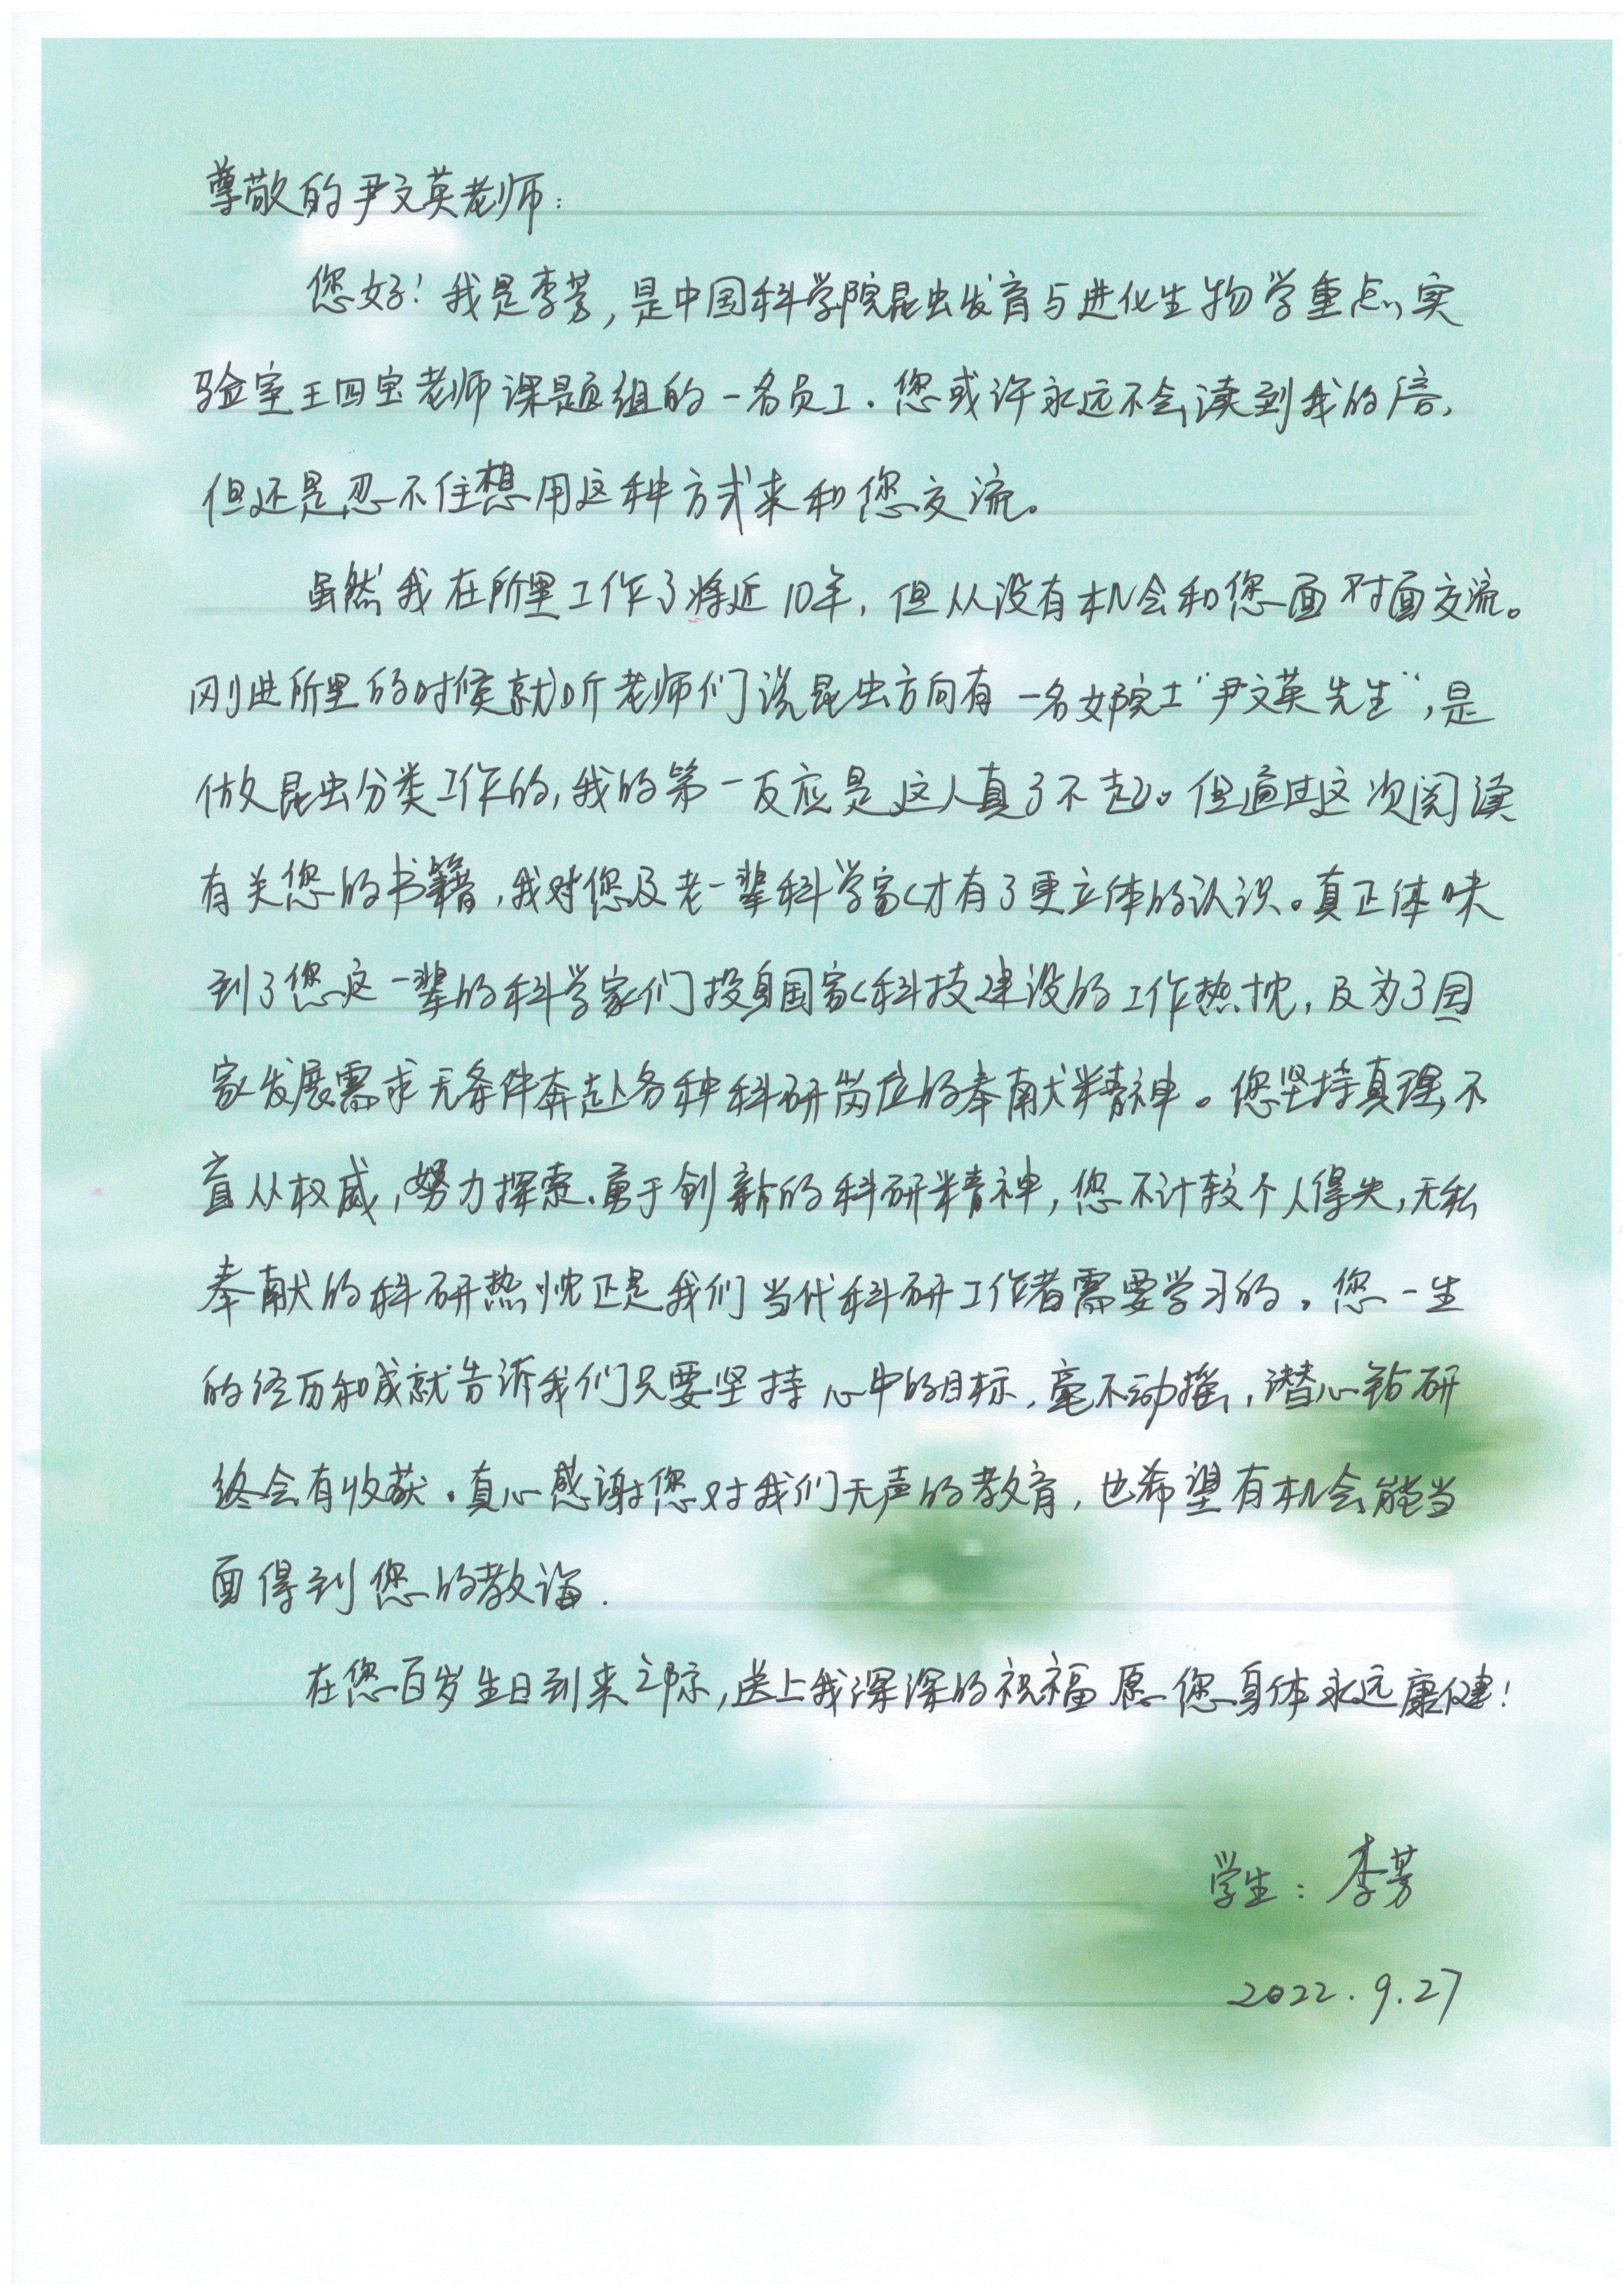 尊敬的尹文英老师：
您好！我是李芳，是中国科学院昆虫发育与进化生物学重点实
验室王四宝老师课题组的一名员工．您或许永远不会读到我的信，
但还是忍不住想用这种方式来和您交流。
虽然我在所里工作了将近10年，但从没有机会和您面对面交流。
刚进所里的时候就听老师们说昆虫方向有一名女院士“尹文英先生”，是
做昆虫分类工作的，我的第一反应是这人真了不起。但通过这次阅读
有关您的书籍，我对您及老一辈科学家才有了更立体的认识。真正体味
到了您这一辈的科学家们投身国家科技建设的工作热忱，及为了国
家发展需求无条件奔赴各种科研岗位的奉献精神。您坚持真理，不
盲从权威，努力探索、勇于创新的科研精神，您不计较个人得失，无私
奉献的科研热忱还是我们当代科研工作者需要学习的。您一生
的经历和成就告诉我们只要坚持心中的目标，毫不动摇，潜心钻研
终会有收获．真心感谢您对我们无声的教育，也希望有机会能当
面得到您的教诲．
在您百岁生日到来之际，送上我深深的祝福 愿您身体永远康健！
学生：李芳
2022.9.27